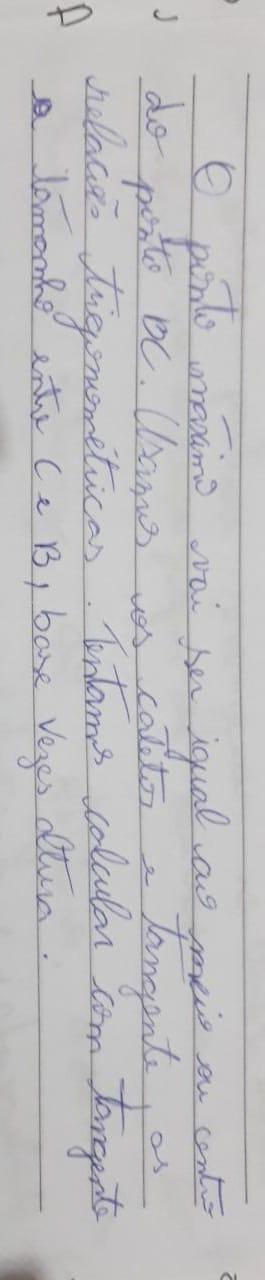 O ponto máximo vai ser igual ao meio ou centro
do ponto BC. Usamos os catetos e tangente as
relações trigonométricas. Tentamos calcular com tangente
o tamanho entre C e B, base vezes altura.